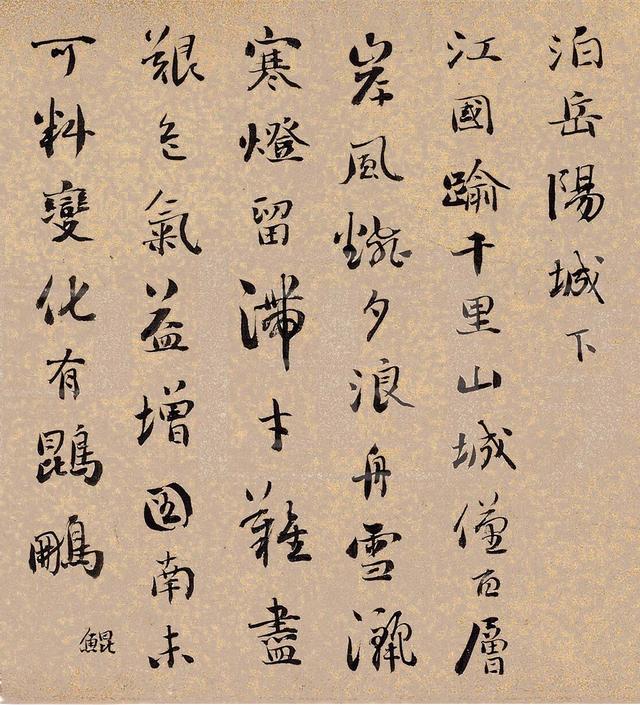 泊岳陽城下
江國踰千里山城僅百層
岸風飜夕浪舟雪灑
寒燈留滯才難盡
艱危氣益增圖南未
可料變化有鵾鵬
鯤